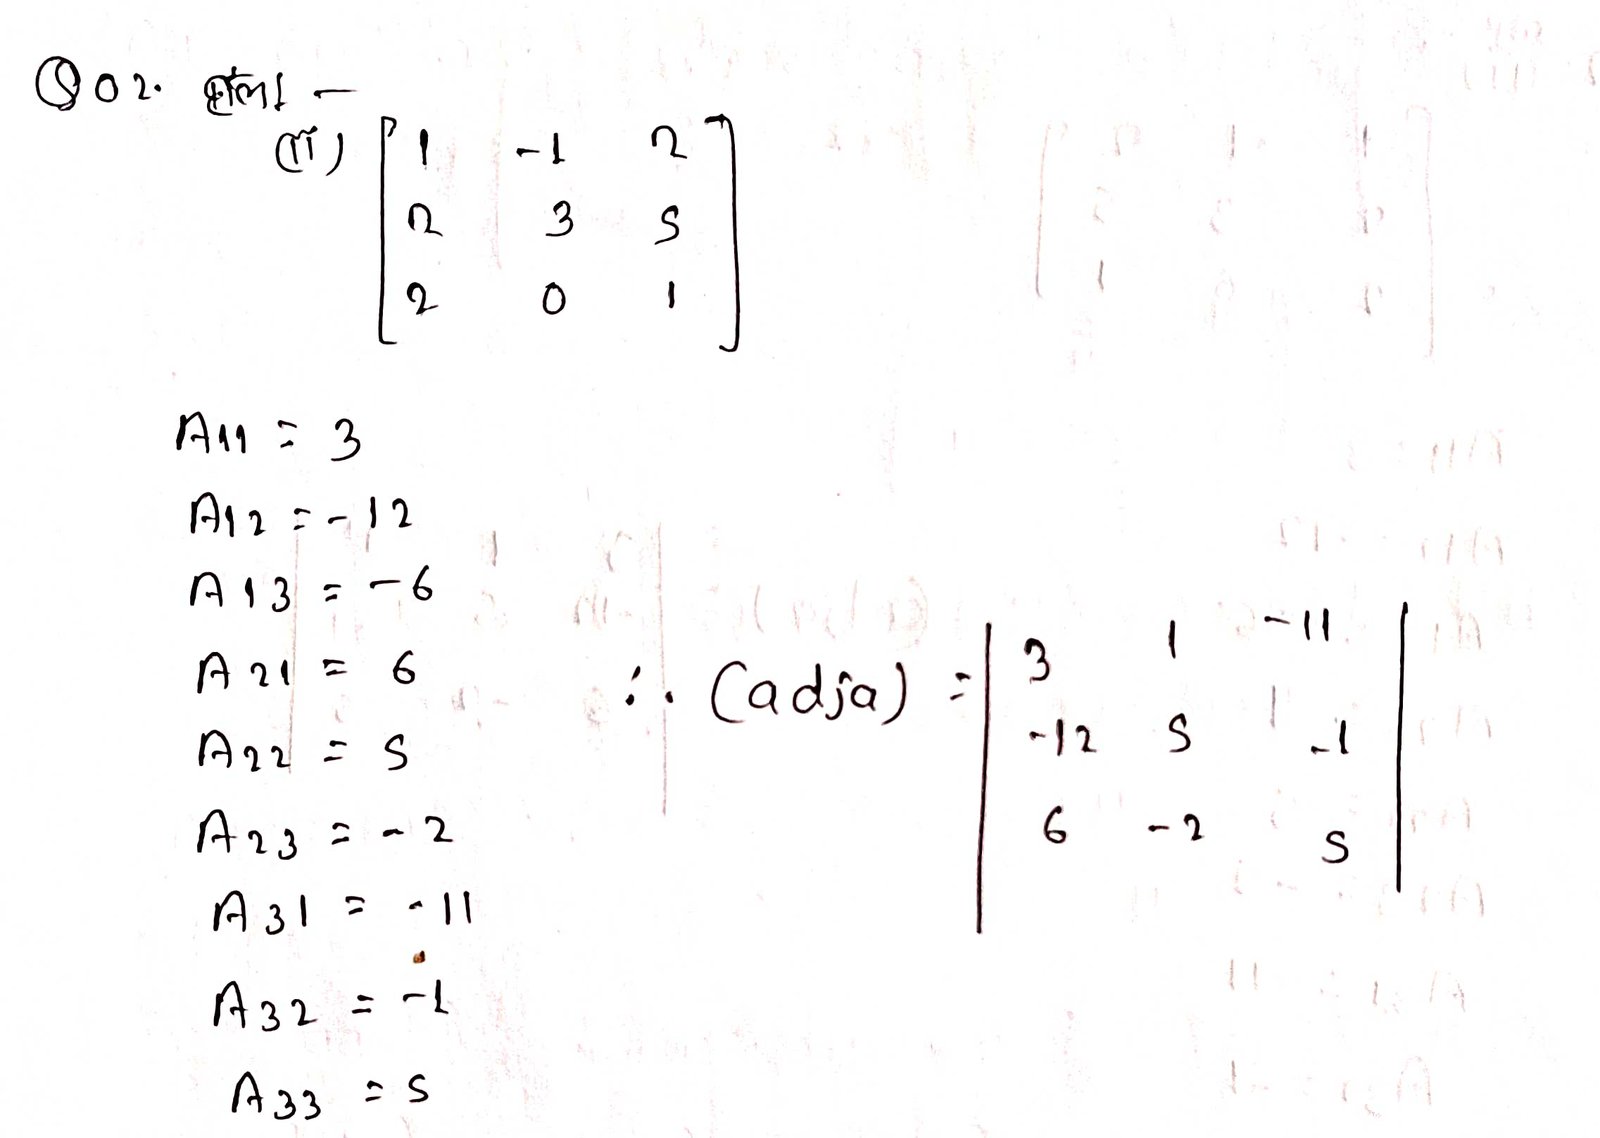 Q02. हल।-
(ii) [ 1 -1 2
2 3 5
2 0 1 ]
A11 = 3
A12 = -12
A13 = -6
A21 = 6
A22 = 5
A23 = -2
A31 = -11
A32 = -1
A33 = 5
∴ (adja) = | 3 1 -11
-12 5 -1
6 -2 5 |